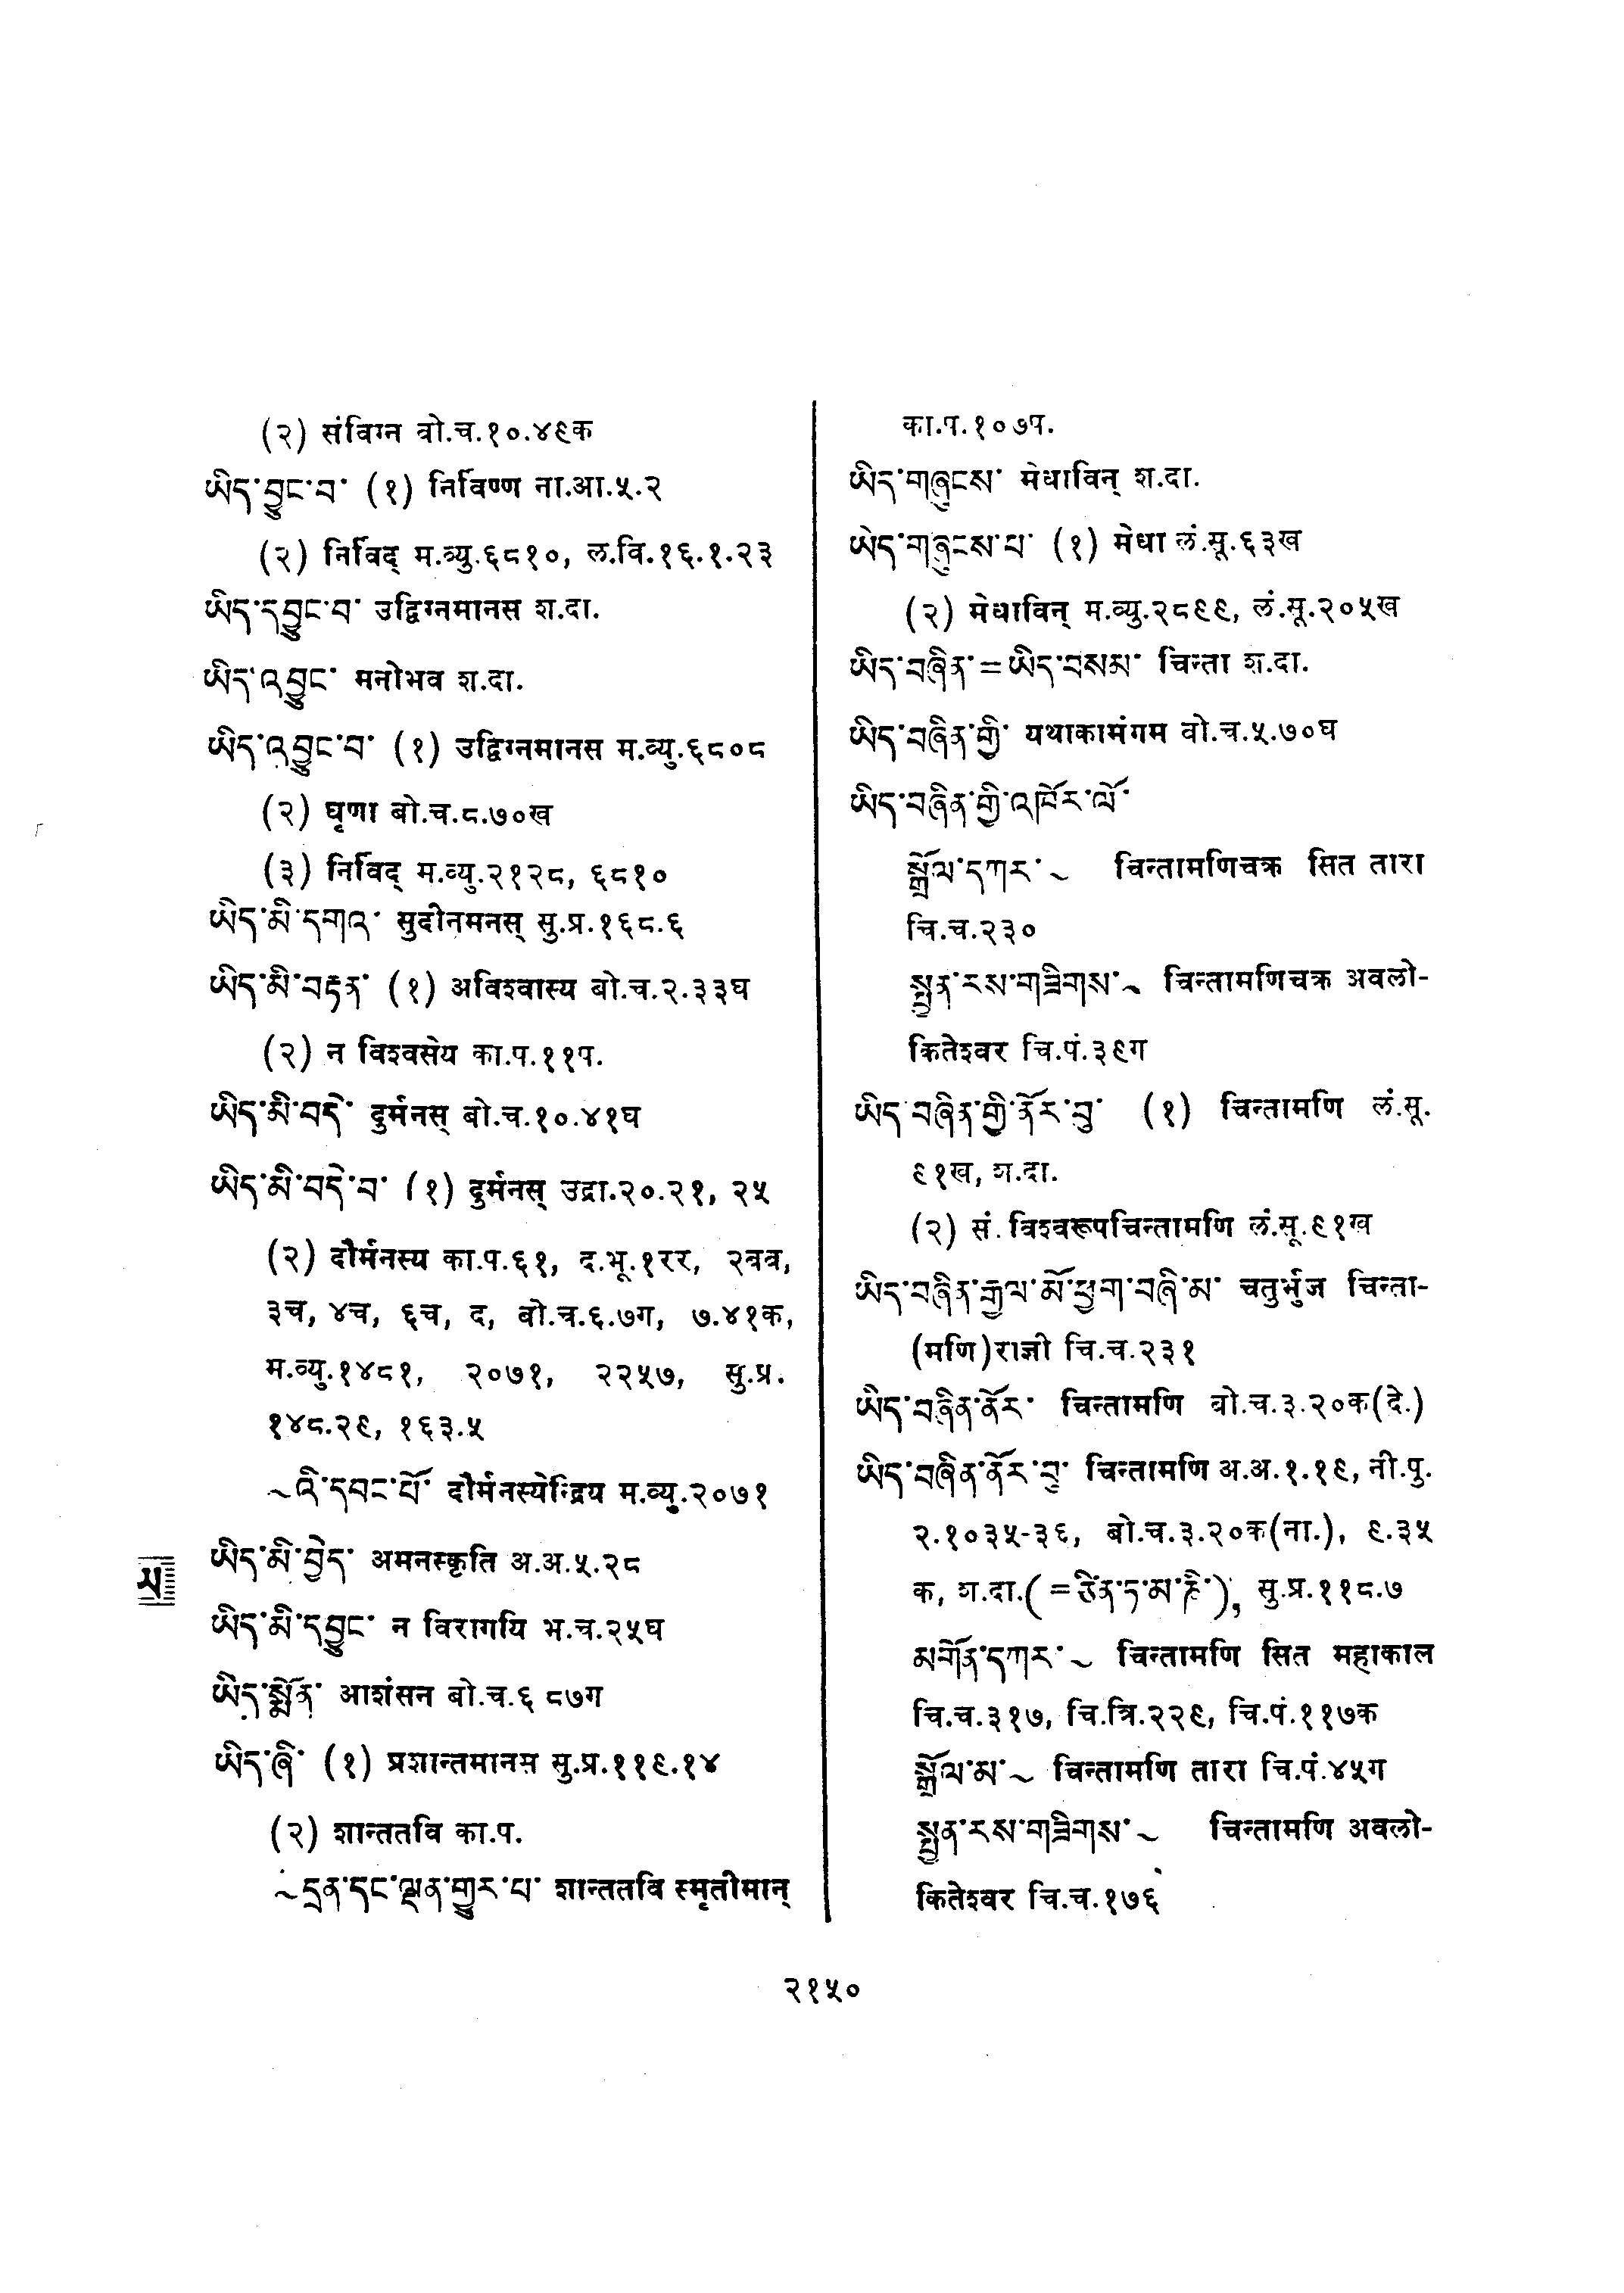 (२) संविग्न बो.च.१०.४९क
ཡིད་བྱུང་བ་ (१) निर्विण्ण ना.आ.५.२
(२) निर्विद् म.व्यु.६८१०, ल.वि.१६.१.२३
ཡིད་དབྱུང་བ་ उद्विग्नमानस श.दा.
ཡིད་འབྱུང་ मनोभव श.दा.
ཡིད་འབྱུང་བ་ (१) उद्विग्नमानस म.व्यु.६८०८
(२) घृणा बो.च.८.७०ख
(३) निर्विद् म.व्यु.२१२८, ६८१०
ཡིད་མི་དགའ་ सुदीनमनस् सु.प्र.१६८.६
ཡིད་མི་བརྟན་ (१) अविश्वास्य बो.च.२.३३घ
(२) न विश्वसेय का.प.११प.
ཡིད་མི་བདེ་ दुर्मनस् बो.च.१०.४१घ
ཡིད་མི་བདེ་བ་ (१) दुर्मनस् उद्रा.२०.२१, २५
(२) दौर्मनस्य का.प.६१, द.भू.१रर, २त्रत्र,
३च, ४च, ६च, द, बो.च.६.७ग, ७.४१क,
म.व्यु.१४८१, २०७१, २२५७, सु.प्र.
१४८.२९, १६३.५
~འི་དབང་པོ་ दौर्मनस्येन्द्रिय म.व्यु.२०७१
ཡིད་མི་བྱེད་ अमनस्कृति अ.अ.५.२८
ཡ
ཡིད་མི་དབྱུང་ न विरागयि भ.च.२५घ
ཡིད་སྨོན་ आशंसन बो.च.६ ८७ग
ཡིད་ཞི་ (१) प्रशान्तमानस सु.प्र.११९.१४
(२) शान्ततवि का.प.
~དྲན་དང་ལྡན་གྱུར་པ་ शान्ततवि स्मृतीमान्
का.प.१०७प.
ཡིད་གཞུངས་ मेधाविन् श.दा.
ཡིད་གཞུངས་པ་ (१) मेधा लं.सू.६३ख
(२) मेधाविन् म.व्यु.२८९९, लं.सू.२०५ख
ཡིད་བཞིན་=ཡིད་བསམ་ चिन्ता श.दा.
ཡིད་བཞིན་གྱི་ यथाकामंगम बो.च.५.७०घ
ཡིད་བཞིན་གྱི་འཁོར་ལོ་
སྒྲོལ་དཀར་~ चिन्तामणिचक्र सित तारा
चि.च.२३०
སྤྱན་རས་གཟིགས་~ चिन्तामणिचक्र अवलो-
कितेश्वर चि.पं.३९ग
ཡིད་བཞིན་གྱི་ནོར་བུ་ (१) चिन्तामणि लं.सू.
९१ख, श.दा.
(२) सं. विश्वरूपचिन्तामणि लं.सू.९१ख
ཡིད་བཞིན་རྒྱལ་མོ་ཕྱག་བཞི་མ་ चतुर्भुज चिन्ता-
(मणि)राज्ञी चि.च.२३१
ཡིད་བཞིན་ནོར་ चिन्तामणि बो.च.३.२०क(दे.)
ཡིད་བཞིན་ནོར་བུ་ चिन्तामणि अ.अ.१.१९, नी.पु.
२.१०३५-३६, बो.च.३.२०क(ना.), ९.३५
क, श.दा.(=ཙིན་ཏ་མ་ཎི་), सु.प्र.११८.७
མགོན་དཀར་~ चिन्तामणि सित महाकाल
चि.च.३१७, चि.त्रि.२२९, चि.पं.११७क
སྒྲོལ་མ་~ चिन्तामणि तारा चि.पं.४५ग
སྤྱན་རས་གཟིགས་~ चिन्तामणि अवलो-
कितेश्वर चि.च.१७६
२१५०